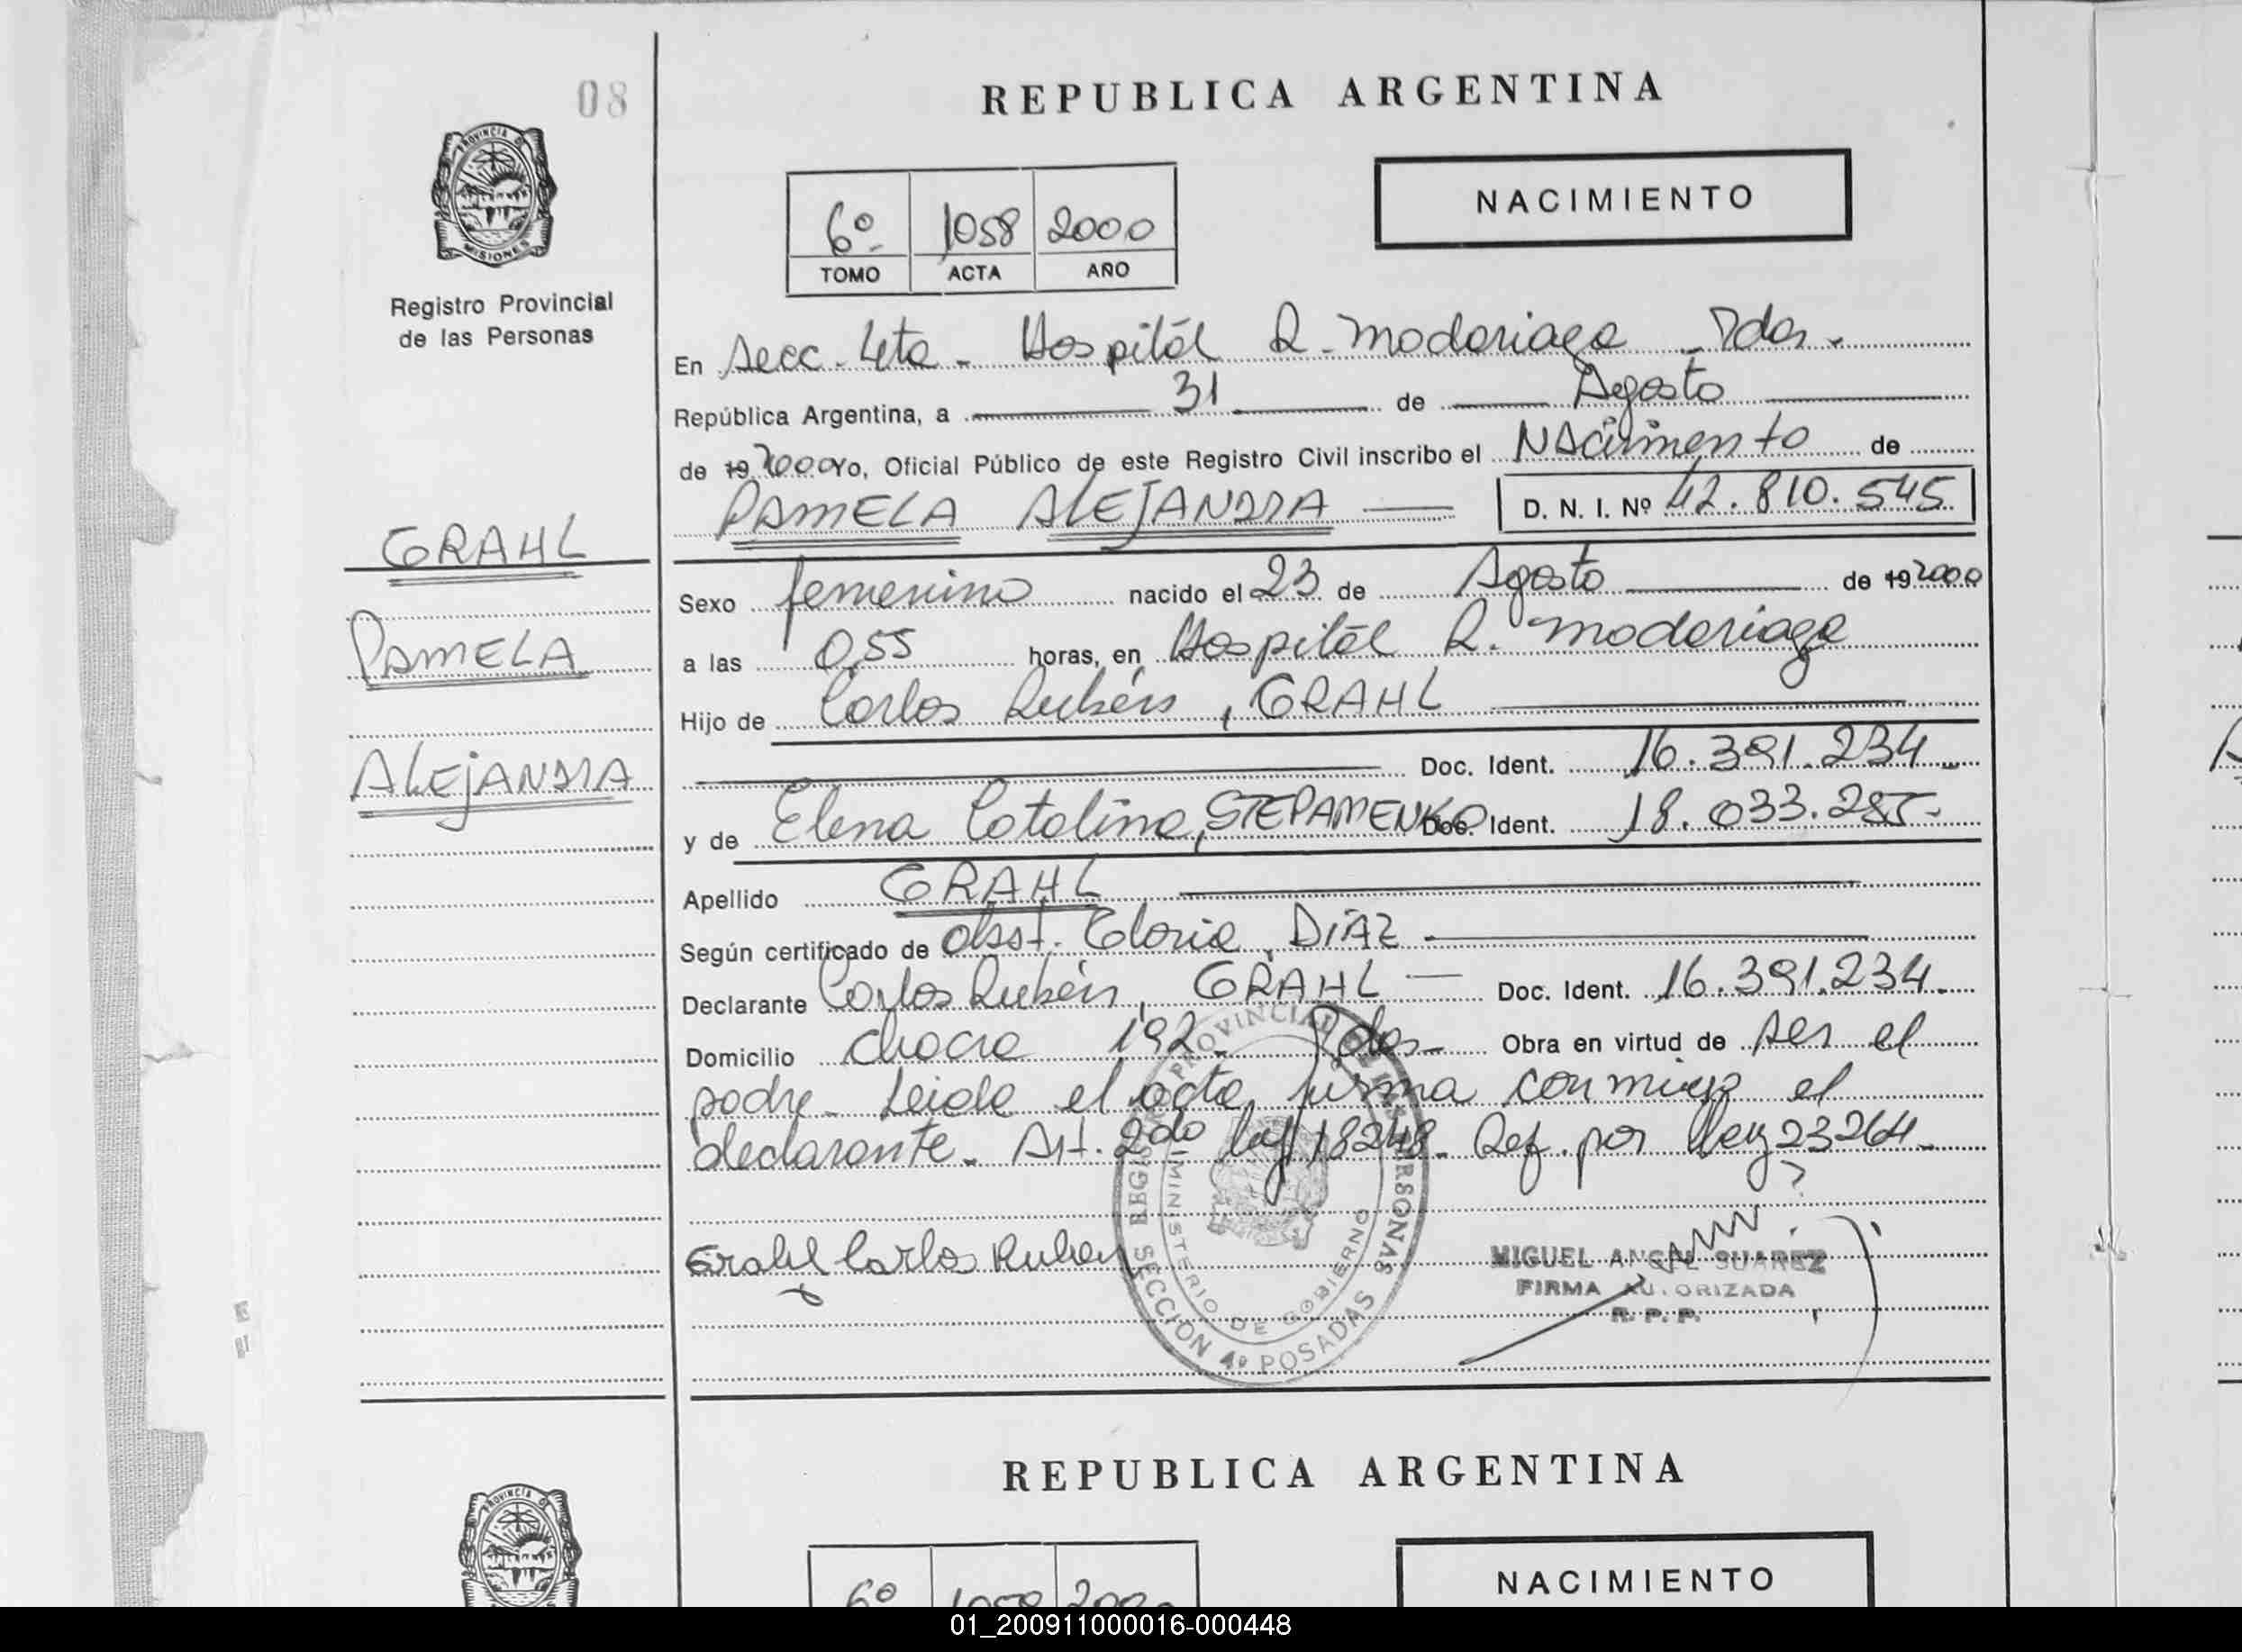 08
REPUBLICA ARGENTINA
PROVINCIA DE
MISIONES
6º 1058 2000
TOMO ACTA AÑO
NACIMIENTO
Registro Provincial
de las Personas
En Secc. 4ta - Hospital R. Madariaga - Pdas.
República Argentina, a 31 de Agosto
de 19 2000 Yo, Oficial Público de este Registro Civil inscribo el NAcimiento de
PAMELA ALEJANDRA D. N. I. Nº 42.810.545
GRAHL
Sexo femenino nacido el 23 de Agosto de 19 2000
PAMELA
a las 0,55 horas, en Hospital R. Madariaga
Hijo de Carlos Rubén, GRAHL
ALEjANDRA
Doc. Ident. 16.391.234
y de Elena Catalina, STEPAMENKO Doc. Ident. 18.033.285-
Apellido GRAHL
Según certificado de obst. Gloria, DiAZ
Declarante Carlos Rubén, GRAHL Doc. Ident. 16.391.234.
Domicilio chacra 192. Pdas- Obra en virtud de ser el
padre- Leida el acta, firma conmigo el
declarante. Art. 2do ley 18248. Ref. por ley 23264.
Grahl Carlos Ruben
MIGUEL ANGEL SUAREZ
FIRMA AUTORIZADA
R. P. P.
REGISTRO PROVINCIAL DE LAS PERSONAS
MINISTERIO DE GOBIERNO
SECCION 4º POSADAS
REPUBLICA ARGENTINA
PROVINCIA DE
6º 1059 2000
NACIMIENTO
01_200911000016-000448